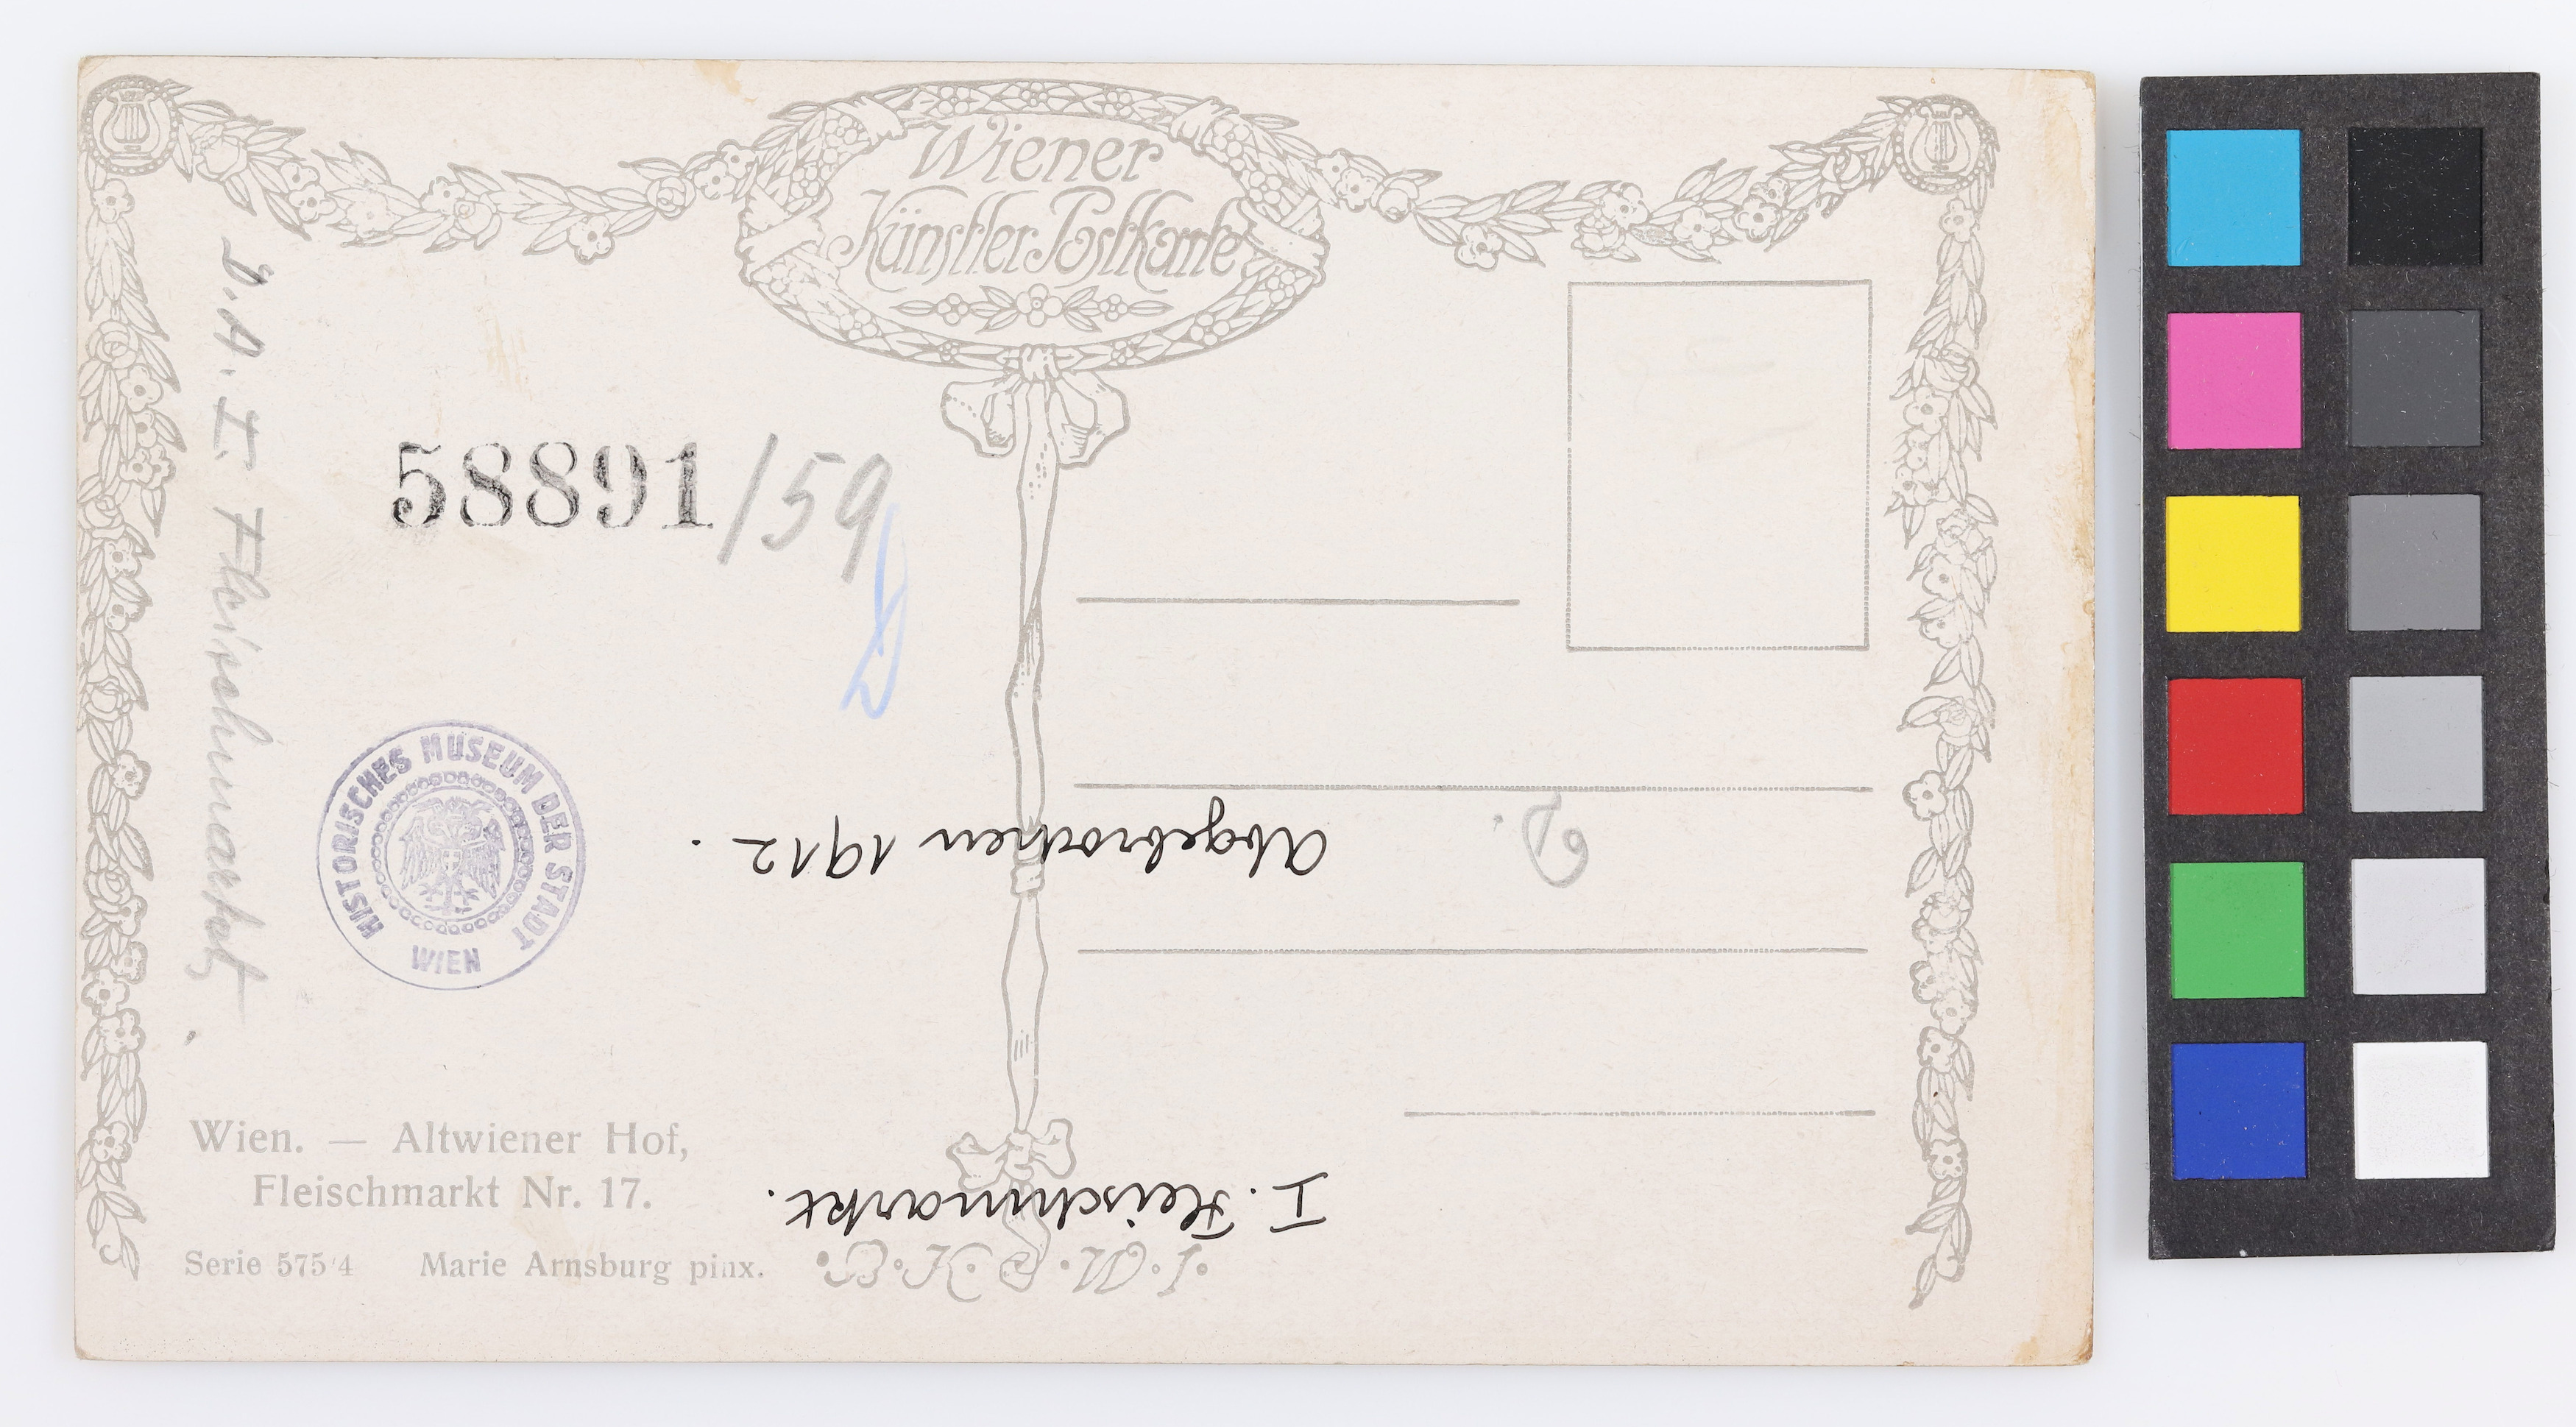 Wiener
Künstler Postkarte
D. A. I. Fleischmarkt.
58891/59
D
HISTORISCHES MUSEUM DER STADT WIEN
D.
Abgebrochen 1912.
I. Fleischmarkt.
Wien. — Altwiener Hof,
Fleischmarkt Nr. 17.
Serie 575/4 Marie Arnsburg pinx.